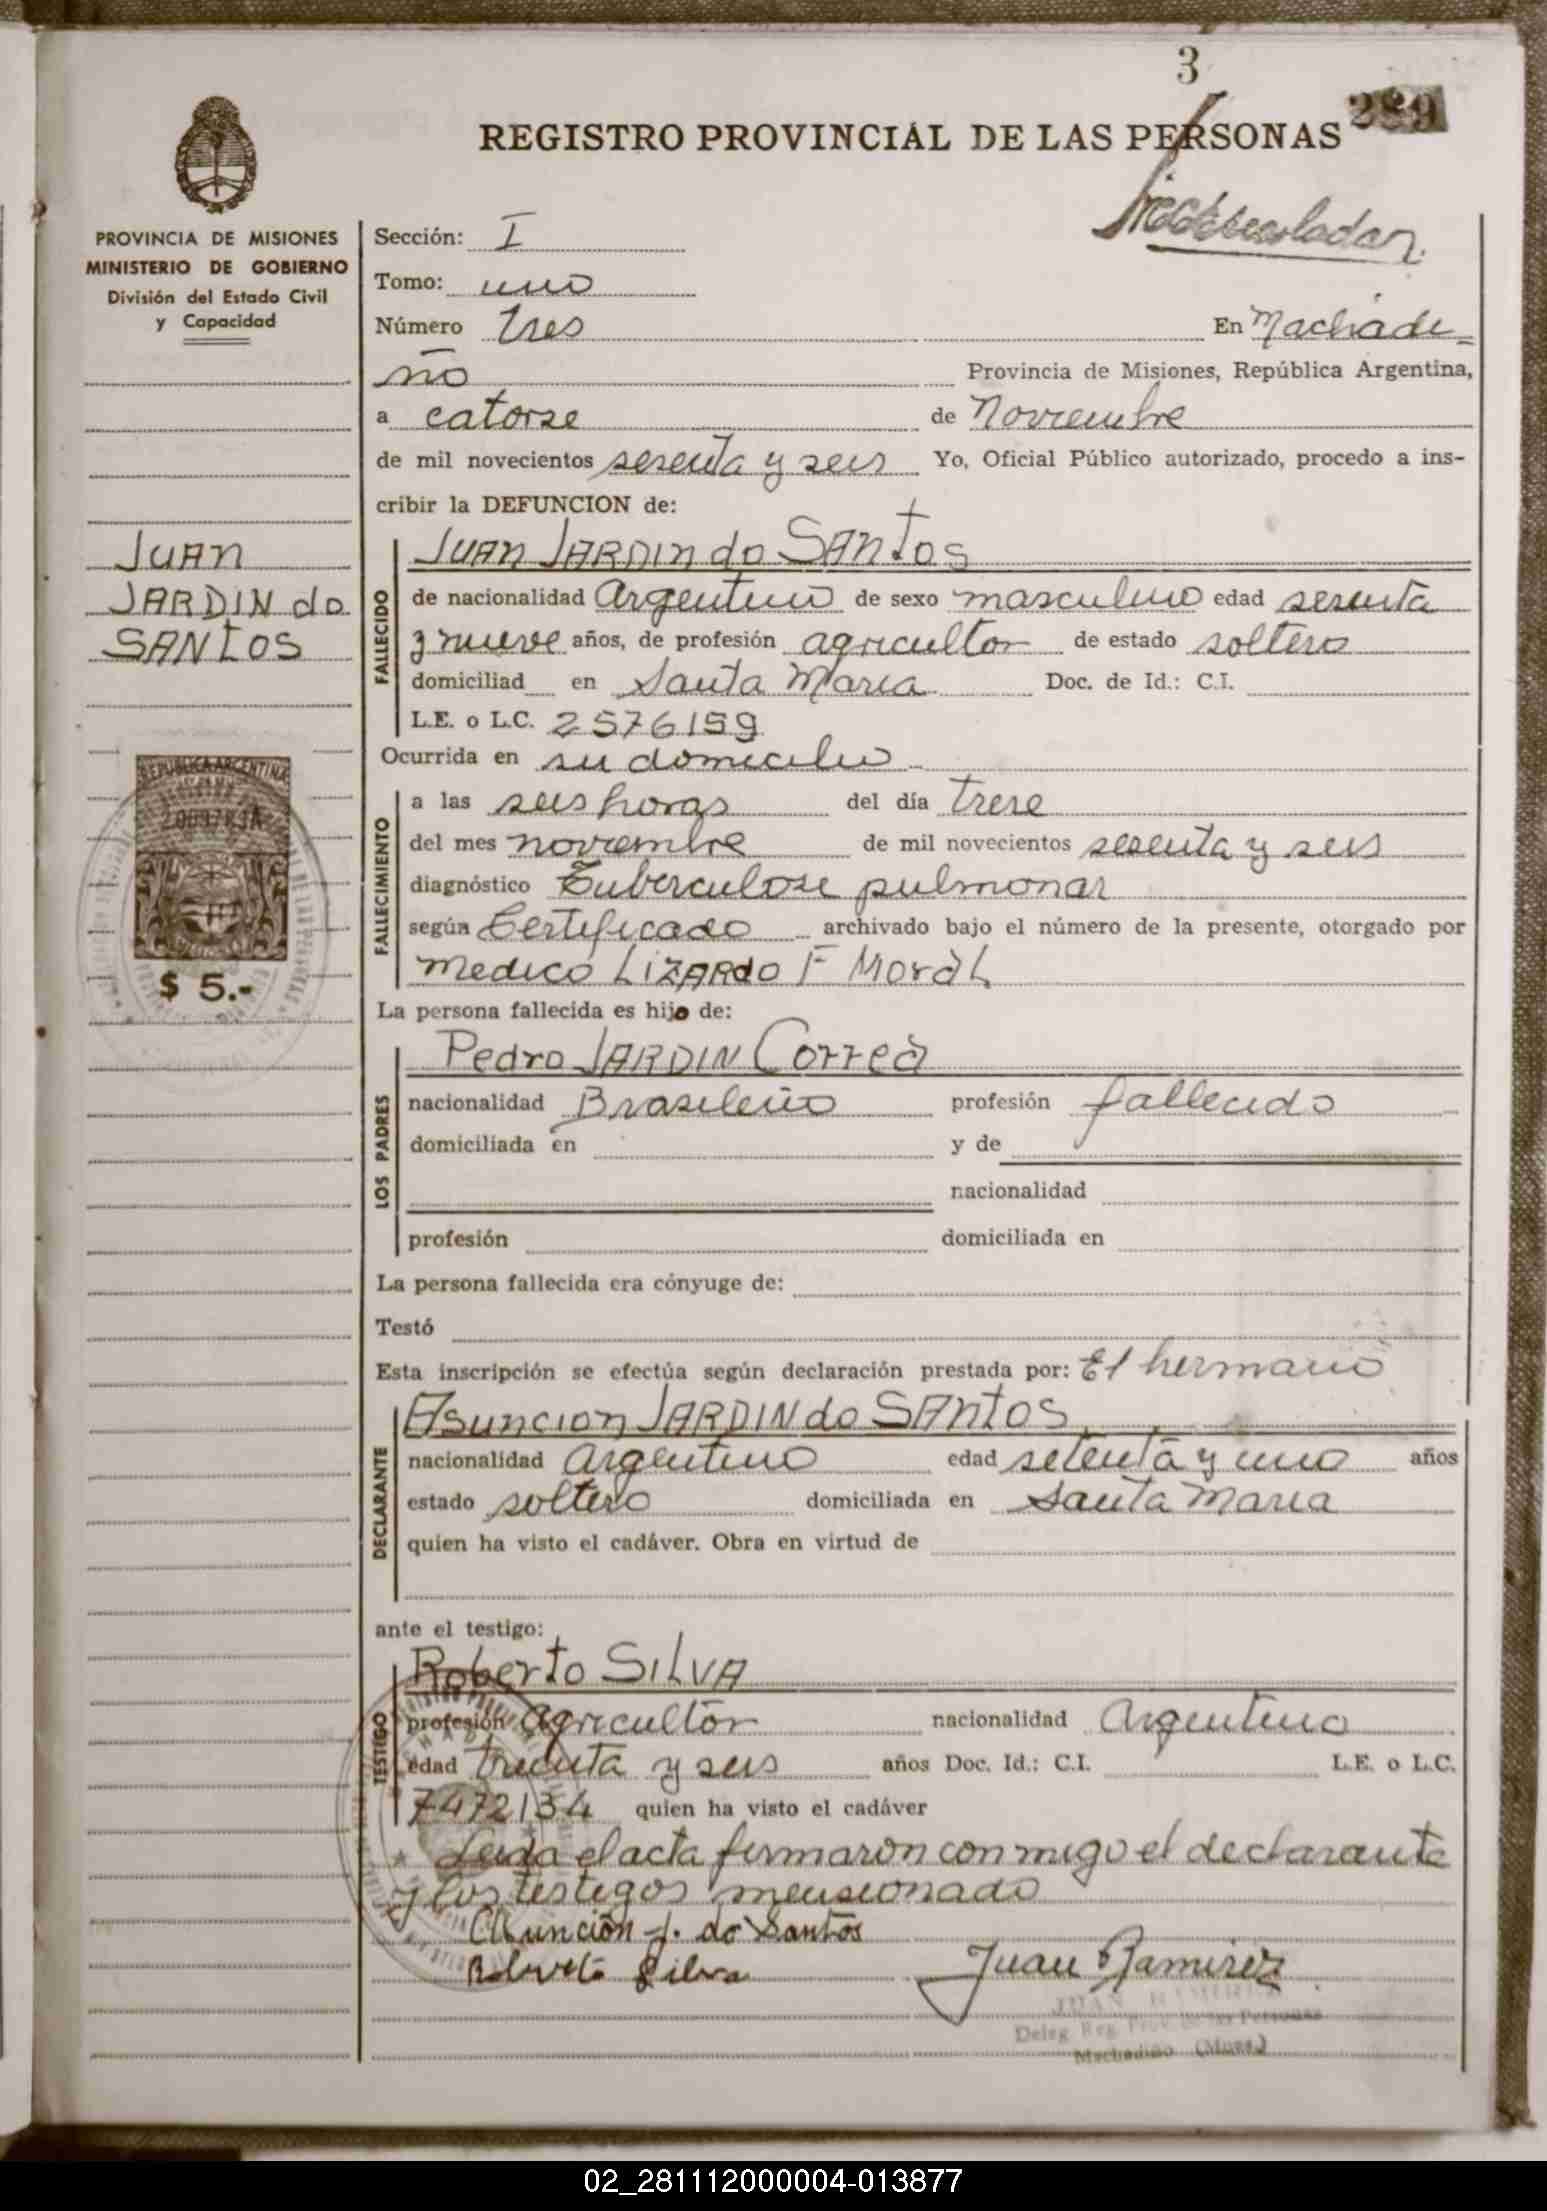 3
289
REGISTRO PROVINCIAL DE LAS PERSONAS
PROVINCIA DE MISIONES
MINISTERIO DE GOBIERNO
División del Estado Civil
y Capacidad
JUAN
JARDIN do
SANTOS
REPUBLICA ARGENTINA
$ 5.-
Sección: I
Tomo: uno
Número tres En Machadi-
ño Provincia de Misiones, República Argentina,
a catorse de Noviembre
de mil novecientos sesenta y seis Yo, Oficial Público autorizado, procedo a ins-
cribir la DEFUNCION de:
FALLECIDO
JUAN JARDIN do SANTOS
de nacionalidad Argentino de sexo masculino edad sesenta
y nueve años, de profesión agricultor de estado soltero
domiciliad en Santa Maria Doc. de Id.: C.I.
L.E. o L.C. 2576159
Ocurrida en su domicilio
FALLECIMIENTO
a las seis horas del día trese
del mes noviembre de mil novecientos sesenta y seis
diagnóstico Tuberculose pulmonar
según Certificado archivado bajo el número de la presente, otorgado por
medico LIZARdo F Moral
La persona fallecida es hijo de:
LOS PADRES
Pedro JARDIN Correa
nacionalidad Brasileño profesión fallecido
domiciliada en y de
nacionalidad
profesión domiciliada en
La persona fallecida era cónyuge de:
Testó
Esta inscripción se efectúa según declaración prestada por: El hermano
DECLARANTE
Asuncion JARDIN do SANTOS
nacionalidad Argentino edad setenta y uno años
estado soltero domiciliada en Santa Maria
quien ha visto el cadáver. Obra en virtud de
ante el testigo:
TESTIGO
Roberto SILVA
profesión agricultor nacionalidad Argentino
edad treinta y seis años Doc. Id.: C.I. L.E. o L.C.
7472134 quien ha visto el cadáver
Leida el acta firmaron con migo el declarante
y los testigos mensionado
Asunción J. do Santos
Roberto Silva
Juan Ramirez
JUAN RAMIREZ
Deleg Reg Prov de las Personas
Machadiño (Mnes.)
02_281112000004-013877